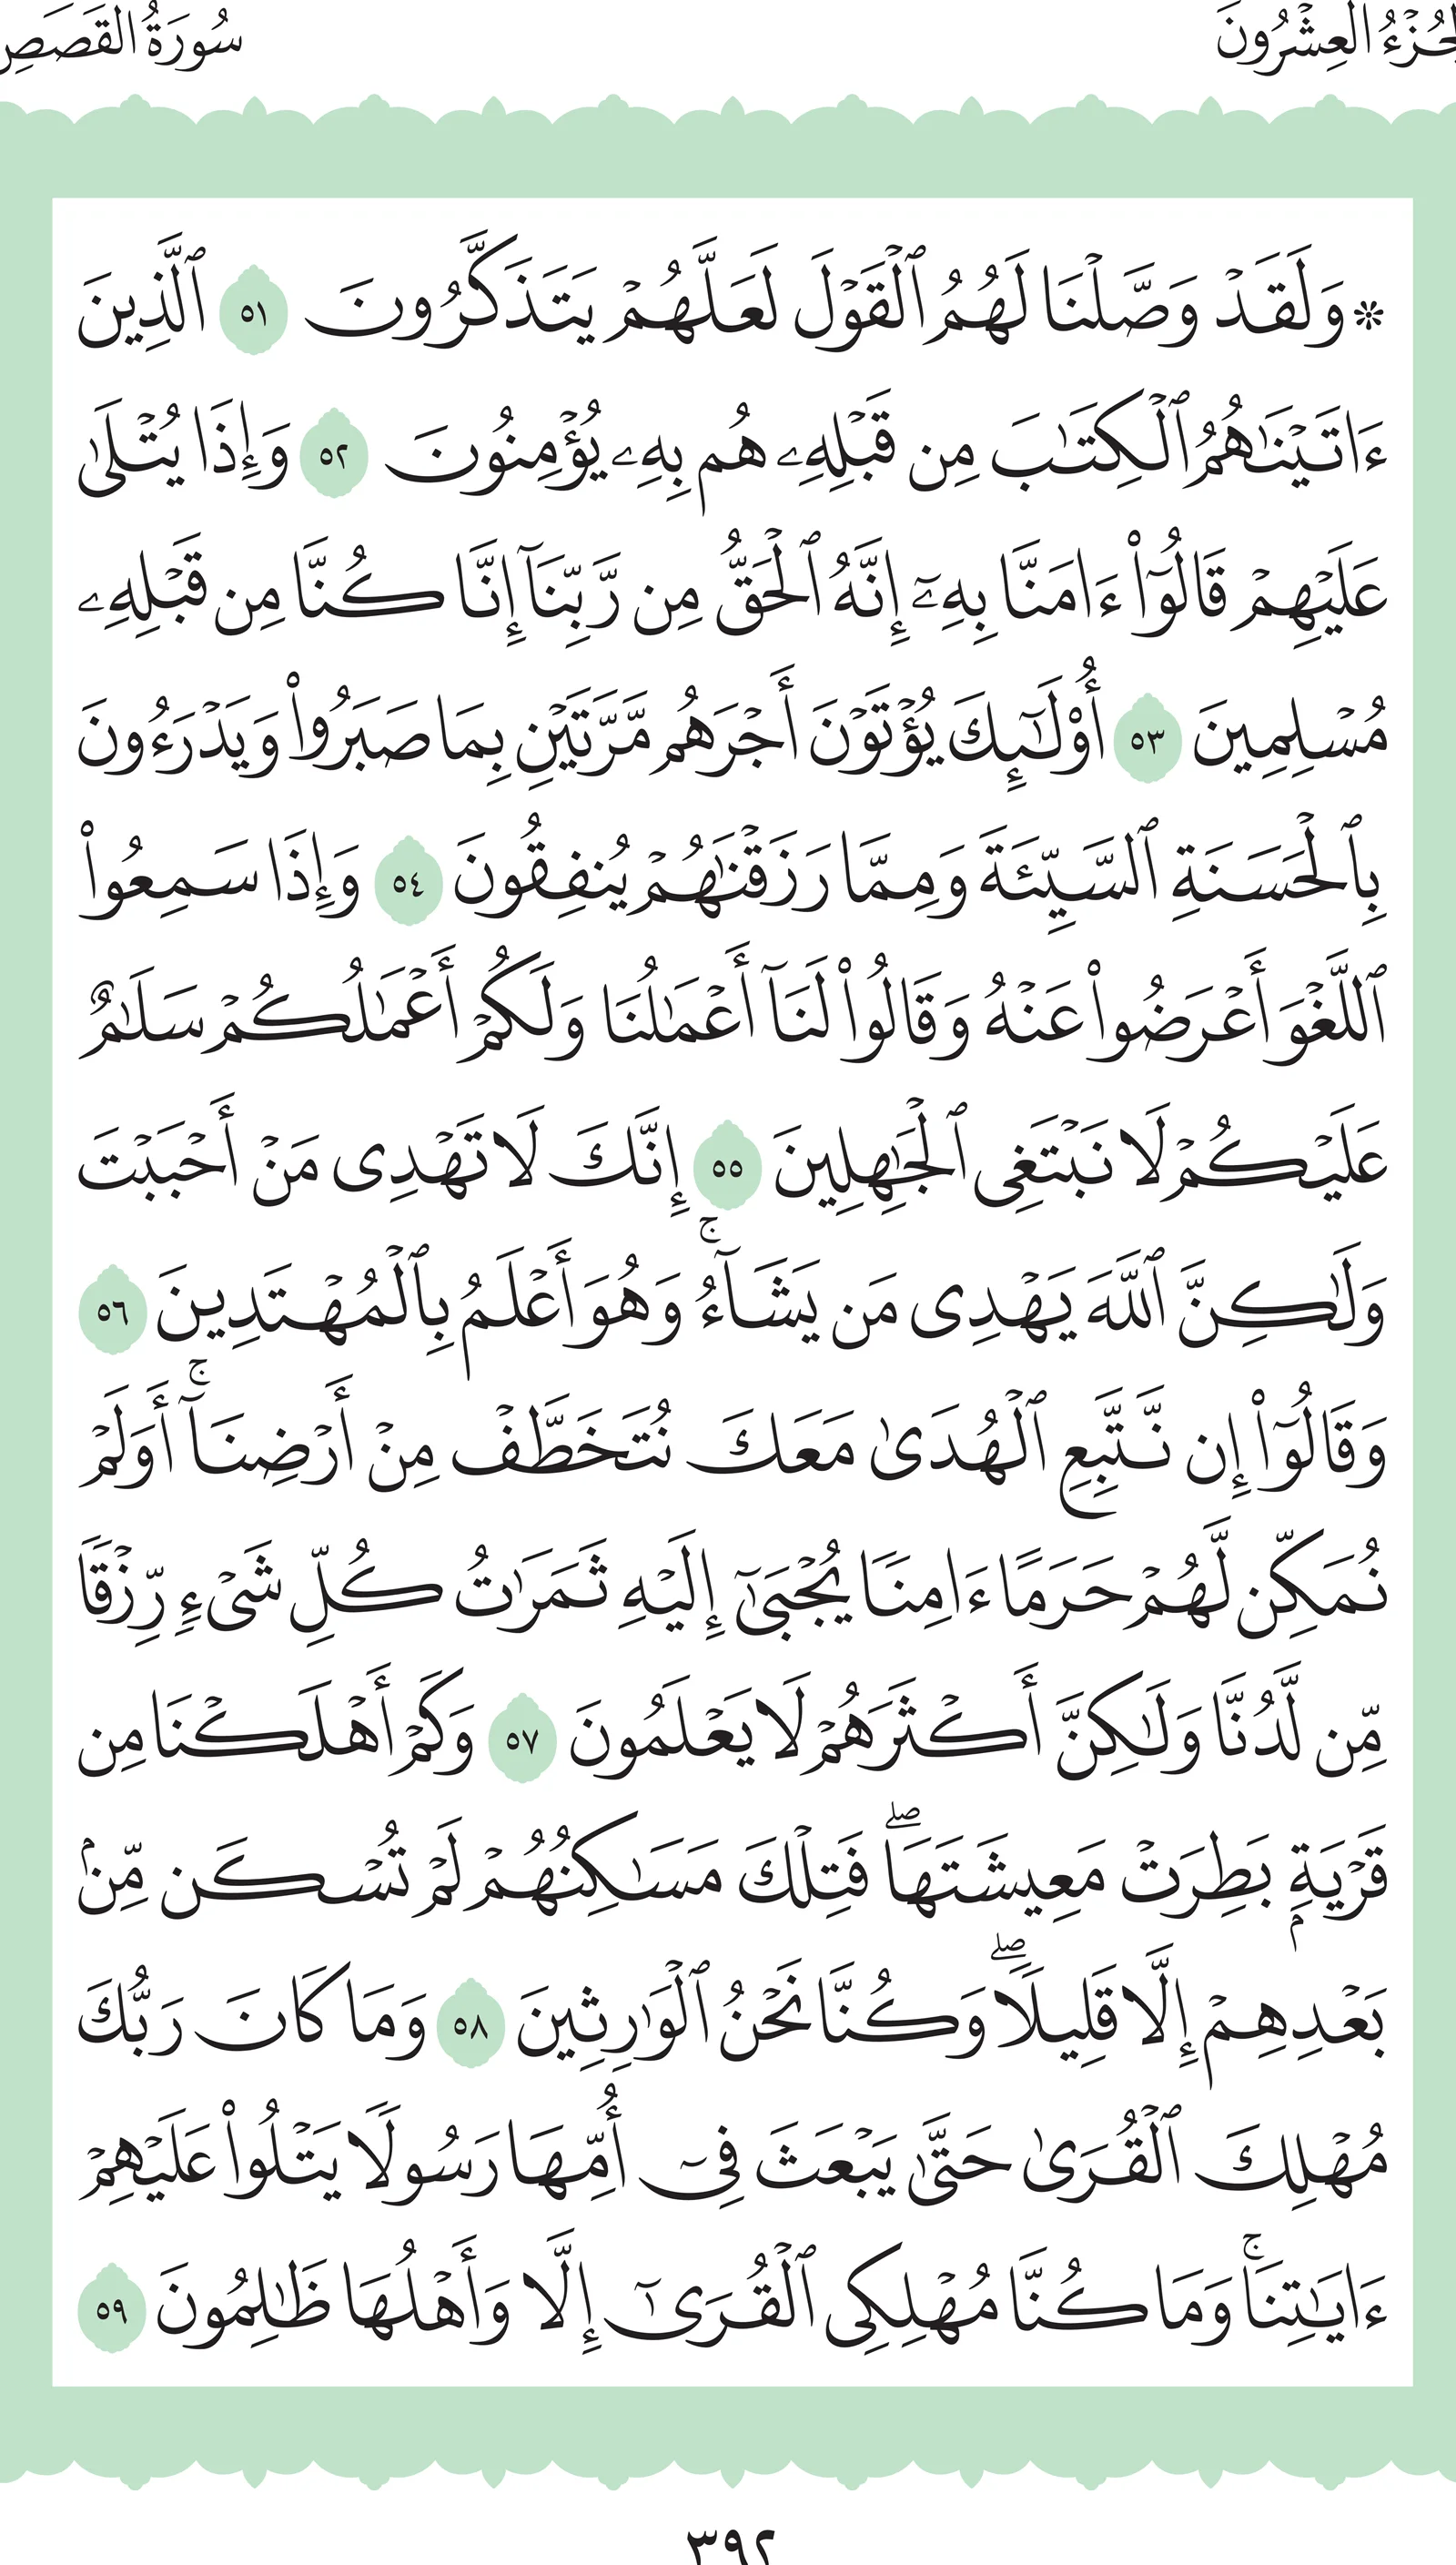 الجُزْءُ العِشْرُونَ
سُورَةُ القَصَصِ
۞ وَلَقَدْ وَصَّلْنَا لَهُمُ ٱلْقَوْلَ لَعَلَّهُمْ يَتَذَكَّرُونَ ٥١ ٱلَّذِينَ
ءَاتَيْنَٰهُمُ ٱلْكِتَٰبَ مِن قَبْلِهِۦ هُم بِهِۦ يُؤْمِنُونَ ٥٢ وَإِذَا يُتْلَىٰ
عَلَيْهِمْ قَالُوٓا۟ ءَامَنَّا بِهِۦٓ إِنَّهُ ٱلْحَقُّ مِن رَّبِّنَآ إِنَّا كُنَّا مِن قَبْلِهِۦ
مُسْلِمِينَ ٥٣ أُو۟لَٰٓئِكَ يُؤْتَوْنَ أَجْرَهُم مَّرَّتَيْنِ بِمَا صَبَرُوا۟ وَيَدْرَءُونَ
بِٱلْحَسَنَةِ ٱلسَّيِّئَةَ وَمِمَّا رَزَقْنَٰهُمْ يُنفِقُونَ ٥٤ وَإِذَا سَمِعُوا۟
ٱللَّغْوَ أَعْرَضُوا۟ عَنْهُ وَقَالُوا۟ لَنَآ أَعْمَٰلُنَا وَلَكُمْ أَعْمَٰلُكُمْ سَلَٰمٌ
عَلَيْكُمْ لَا نَبْتَغِى ٱلْجَٰهِلِينَ ٥٥ إِنَّكَ لَا تَهْدِى مَنْ أَحْبَبْتَ
وَلَٰكِنَّ ٱللَّهَ يَهْدِى مَن يَشَآءُ ۚ وَهُوَ أَعْلَمُ بِٱلْمُهْتَدِينَ ٥٦
وَقَالُوٓا۟ إِن نَّتَّبِعِ ٱلْهُدَىٰ مَعَكَ نُتَخَطَّفْ مِنْ أَرْضِنَآ ۚ أَوَلَمْ
نُمَكِّن لَّهُمْ حَرَمًا ءَامِنًا يُجْبَىٰٓ إِلَيْهِ ثَمَرَٰتُ كُلِّ شَىْءٍ رِّزْقًا
مِّن لَّدُنَّا وَلَٰكِنَّ أَكْثَرَهُمْ لَا يَعْلَمُونَ ٥٧ وَكَمْ أَهْلَكْنَا مِن
قَرْيَةٍۭ بَطِرَتْ مَعِيشَتَهَا ۖ فَتِلْكَ مَسَٰكِنُهُمْ لَمْ تُسْكَن مِّنۢ
بَعْدِهِمْ إِلَّا قَلِيلًا ۖ وَكُنَّا نَحْنُ ٱلْوَٰرِثِينَ ٥٨ وَمَا كَانَ رَبُّكَ
مُهْلِكَ ٱلْقُرَىٰ حَتَّىٰ يَبْعَثَ فِىٓ أُمِّهَا رَسُولًا يَتْلُوا۟ عَلَيْهِمْ
ءَايَٰتِنَا ۚ وَمَا كُنَّا مُهْلِكِى ٱلْقُرَىٰٓ إِلَّا وَأَهْلُهَا ظَٰلِمُونَ ٥٩
٣٩٢